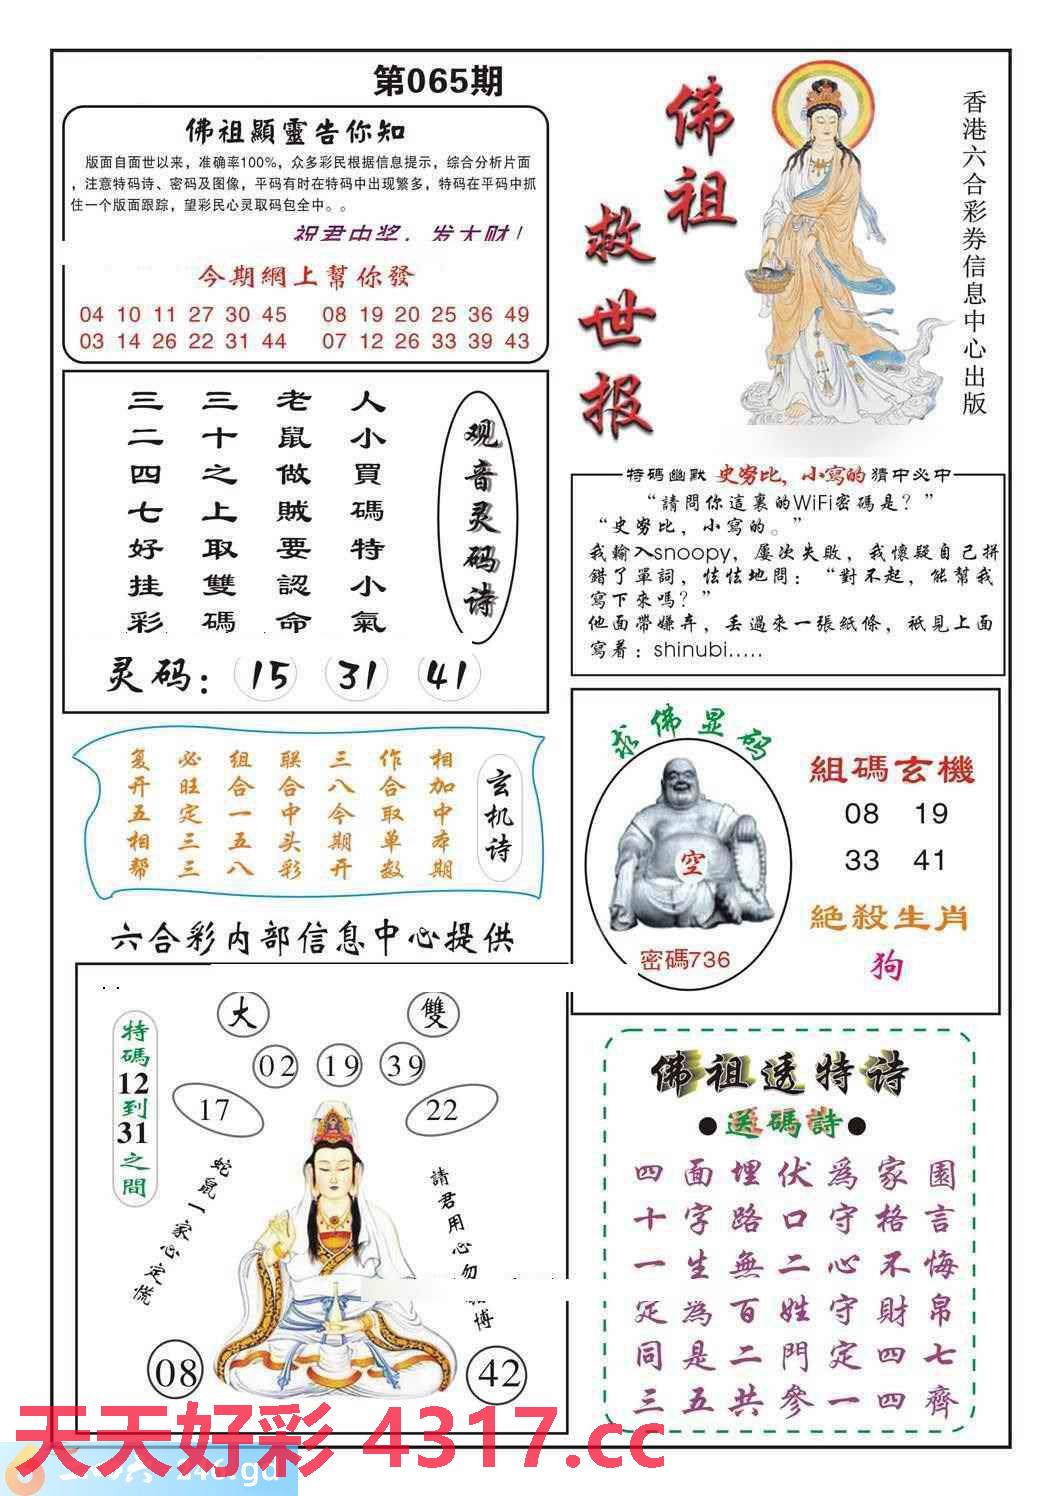 第065期
佛祖顯靈告你知
版面自面世以来，准确率100%，众多彩民根据信息提示，综合分析片面
，注意特码诗、密码及图像，平码有时在特码中出现繁多，特码在平码中抓
住一个版面跟踪，望彩民心灵取码包全中。。
祝君中奖，发大财！
今期網上幫你發
04 10 11 27 30 45 08 19 20 25 36 49
03 14 26 22 31 44 07 12 26 33 39 43
佛祖
救世报
香港六合彩券信息中心出版
观音灵码诗
人小買碼特小氣
老鼠做賊要認命
三十之上取雙碼
三二四七好挂彩
灵码：15 31 41
特碼幽默 史努比，小寫的 猜中必中
“請問你這裏的WiFi密碼是？”
“史努比，小寫的。”
我輸入snoopy，屢次失敗，我懷疑自己拼
錯了單詞，怯怯地問：“對不起，能幫我
寫下來嗎？”
他面帶嫌弃，丟過來一張紙條，衹見上面
寫着：shinubi.....
玄机诗
相加中本期
作合取单数
三八今期开
联合中头彩
组合一五八
必旺定三三
复开五相帮
求佛显码
空
密碼736
組碼玄機
08 19
33 41
絕殺生肖
狗
六合彩内部信息中心提供
大 雙
02 19 39
17 22
特碼12到31之間
蛇鼠一家心定慌
請君用心勿
博
08 42
佛祖透特诗
●送碼詩●
四面埋伏爲家園
十字路口守格言
一生無二心不悔
定為百姓守財帛
同是二門定四七
三五共參一四齊
天天好彩 4317.cc
246.gd